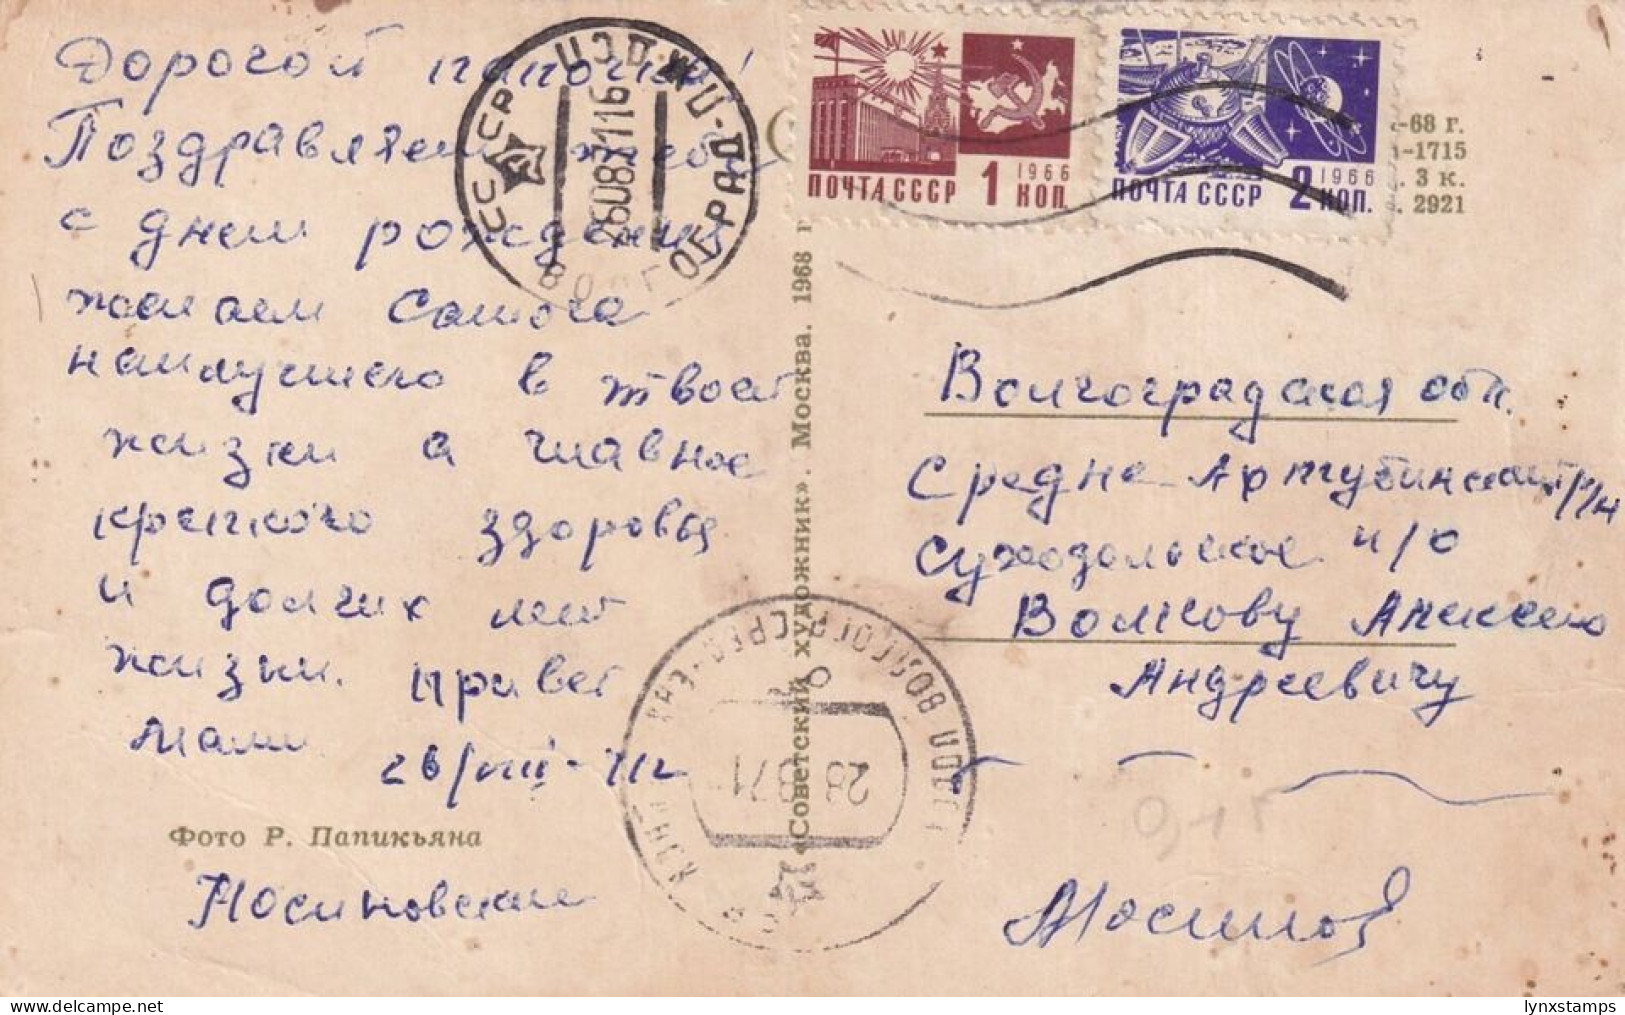 Дорогой папочка!
Поздравляем тебя
с днем рождения
желаем самого
наилучшего в твоей
жизни а главное
крепкого здоровья
и долгих лет
жизни. привет
маме 26/VIII-71г
Фото Р. Папикьяна
«Советский художник». Москва. 1968 г
СССР
ВОЛГОГРАД
260871 16
ПОЧТА СССР 1 1966 КОП.
ПОЧТА СССР 2 1966 КОП.
-68 г.
-1715
. 3 к.
. 2921
Волгоградская обл.
Средне Ахтубинский р/н
Суходольское п/о
Волкову Алексею
Андреевичу
28 71
0,15
lynxstamps